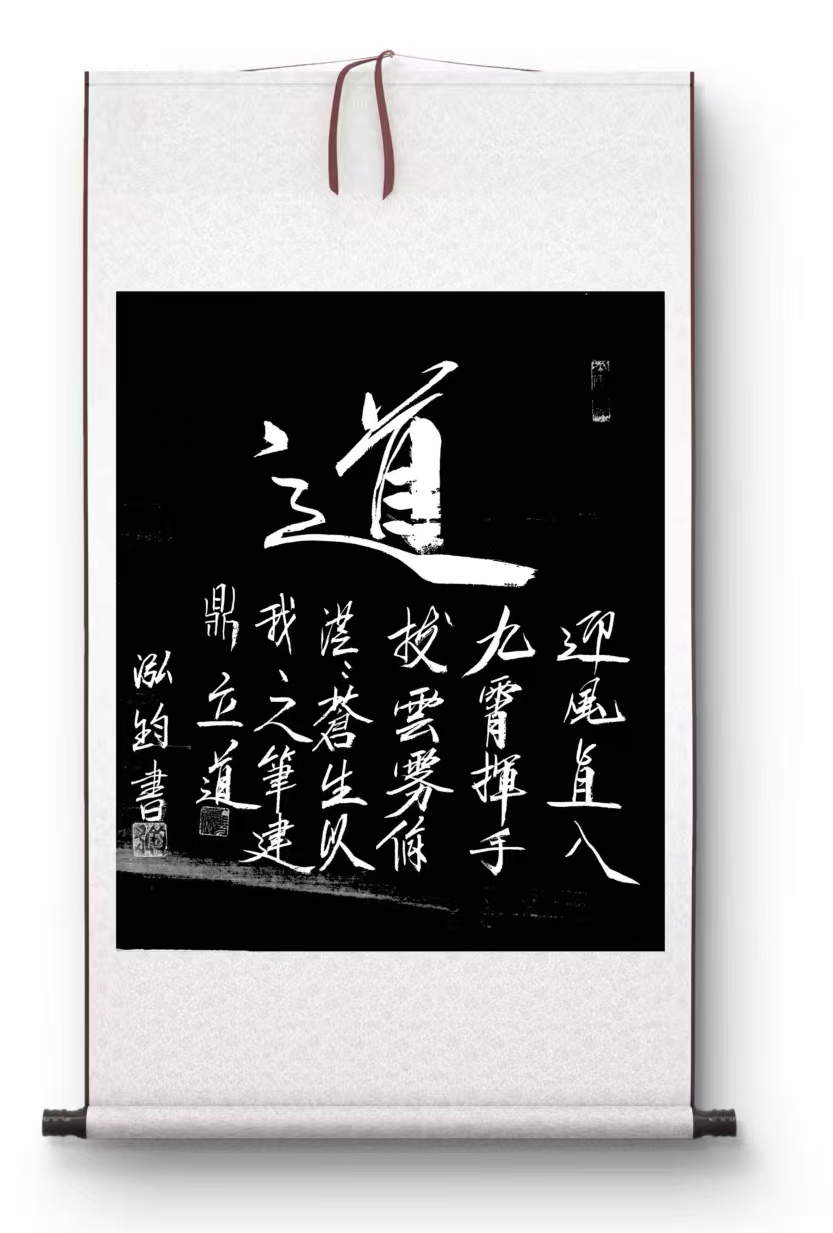 道
迎風直入
九霄揮手
拔雲霧俯
茫〻蒼生以
我之筆建
鼎立道
泓鈞書